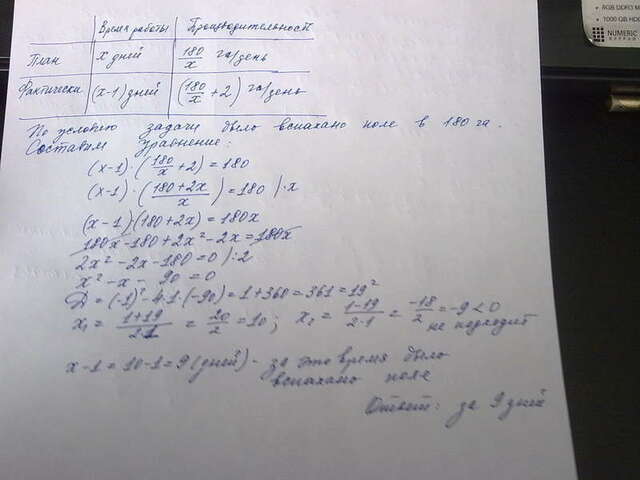 8GB DDR3 M
1000 GB HD
NUMERIC
Время работы Производительность
План x дней 180/x га/день
Фактически (x-1) дней (180/x + 2) га/день
По условию задачи было вспахано поле в 180 га.
Составим уравнение:
(x-1)·(180/x + 2) = 180
(x-1)·((180+2x)/x) = 180 |·x
(x-1)(180+2x) = 180x
180x - 180 + 2x² - 2x = 180x
2x² - 2x - 180 = 0 |:2
x² - x - 90 = 0
D = (-1)² - 4·1·(-90) = 1 + 360 = 361 = 19²
x₁ = (1+19)/(2·1) = 20/2 = 10; x₂ = (1-19)/(2·1) = -18/2 = -9 < 0
не подходит
x - 1 = 10 - 1 = 9 (дней) - за это время было
вспахано поле
Ответ: за 9 дней